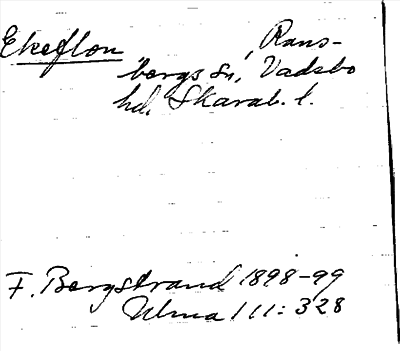 Ekeflon, Rans-
bergs sn, Vadsbo
hd, Skarab. l.
F. Bergstrand 1898-99
Ulma 111:328